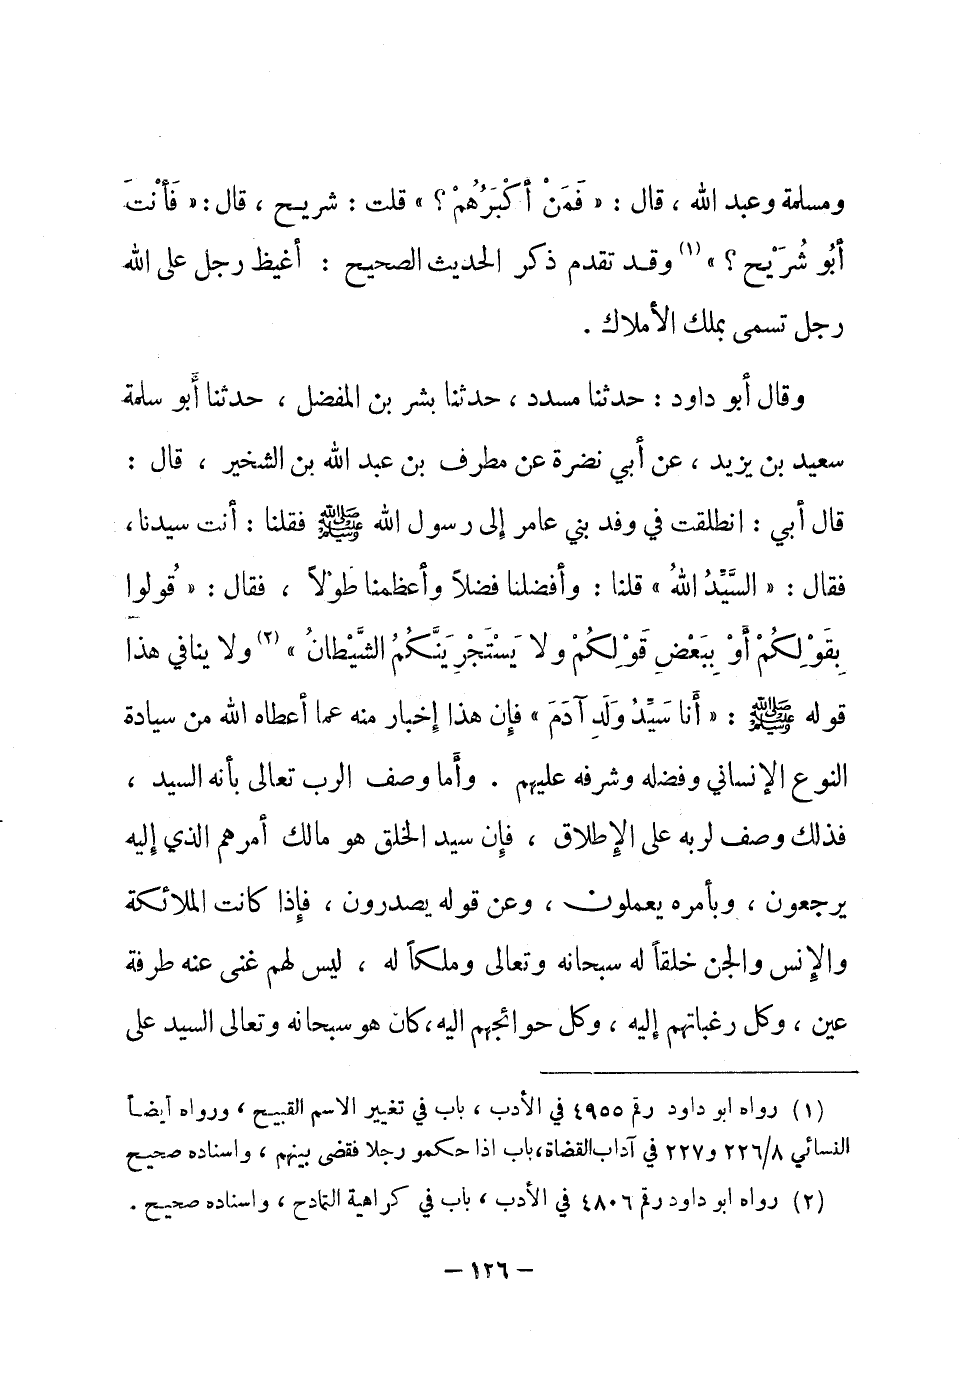 ومسلمة وعبد الله ، قال : « فَمَنْ أَكْبَرُهُمْ ؟ » قلت : شريح ، قال : « فَأَنْتَ
أَبُو شُرَيْح ؟ » (١) وقد تقدم ذكر الحديث الصحيح : أغيظ رجل على الله
رجل تسمى بملك الأملاك .
وقال أبو داود : حدثنا مسدد ، حدثنا بشر بن المفضل ، حدثنا أبو سلمة
سعيد بن يزيد ، عن أبي نضرة عن مطرف بن عبد الله بن الشخير ، قال :
قال أبي : انطلقت في وفد بني عامر إلى رسول الله ﷺ فقلنا : أنت سيدنا ،
فقال : « السَّيِّدُ اللهُ » قلنا : وأفضلنا فضلاً وأعظمنا طَوْلاً ، فقال : « قُولوا
بِقَوْلِكُمْ أَوْ بِبَعْضِ قَوْلِكُمْ ولا يَسْتَجْرِيَنَّكُمُ الشَّيْطانُ » (٢) ولا ينافي هذا
قوله ﷺ : « أَنا سَيِّدُ وَلَدِ آدَمَ » فإن هذا إخبار منه عما أعطاه الله من سيادة
النوع الإنساني وفضله وشرفه عليهم . وأما وصف الرب تعالى بأنه السيد ،
فذلك وصف لربه على الإطلاق ، فإن سيد الخلق هو مالك أمرهم الذي إليه
يرجعون ، وبأمره يعملون ، وعن قوله يصدرون ، فإذا كانت الملائكة
والإنس والجن خلقاً له سبحانه وتعالى وملكاً له ، ليس لهم غنى عنه طرفة
عين ، وكل رغباتهم إليه ، وكل حوائجهم اليه ، كان هو سبحانه وتعالى السيد على
(١) رواه ابو داود رقم ٤٩٥٥ في الأدب ، باب في تغيير الاسم القبيح ، ورواه أيضاً
النسائي ٢٢٦/٨ و٢٢٧ في آداب القضاة ، باب اذا حكمو رجلا فقضى بينهم ، واسناده صحيح
(٢) رواه ابو داود رقم ٤٨٠٦ في الأدب ، باب في كراهية التمادح ، واسناده صحيح .
– ١٢٦ –